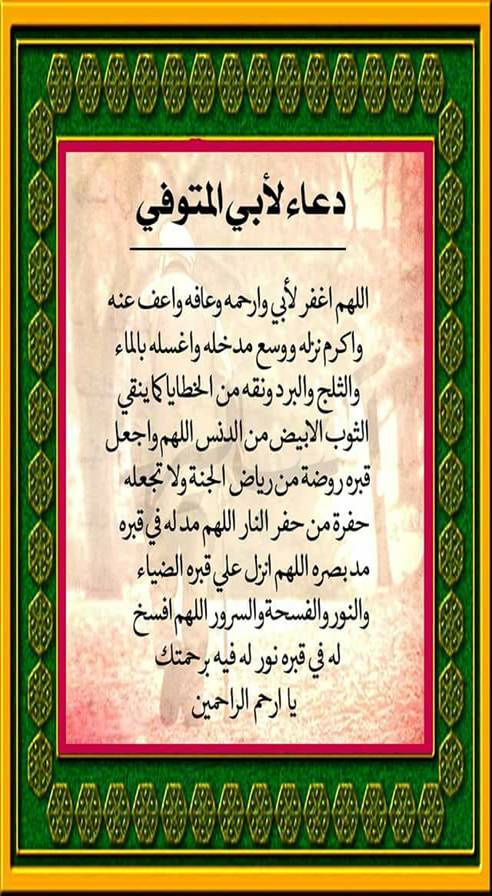 دعاء لأبي المتوفي
اللهم اغفر لأبي وارحمه وعافه واعف عنه
واكرم نزله ووسع مدخله واغسله بالماء
والثلج والبرد ونقه من الخطايا كما ينقي
الثوب الابيض من الدنس اللهم واجعل
قبره روضة من رياض الجنة ولا تجعله
حفرة من حفر النار اللهم مد له في قبره
مد بصره اللهم انزل علي قبره الضياء
والنور والفسحة والسرور اللهم افسخ
له في قبره نور له فيه برحمتك
يا ارحم الراحمين